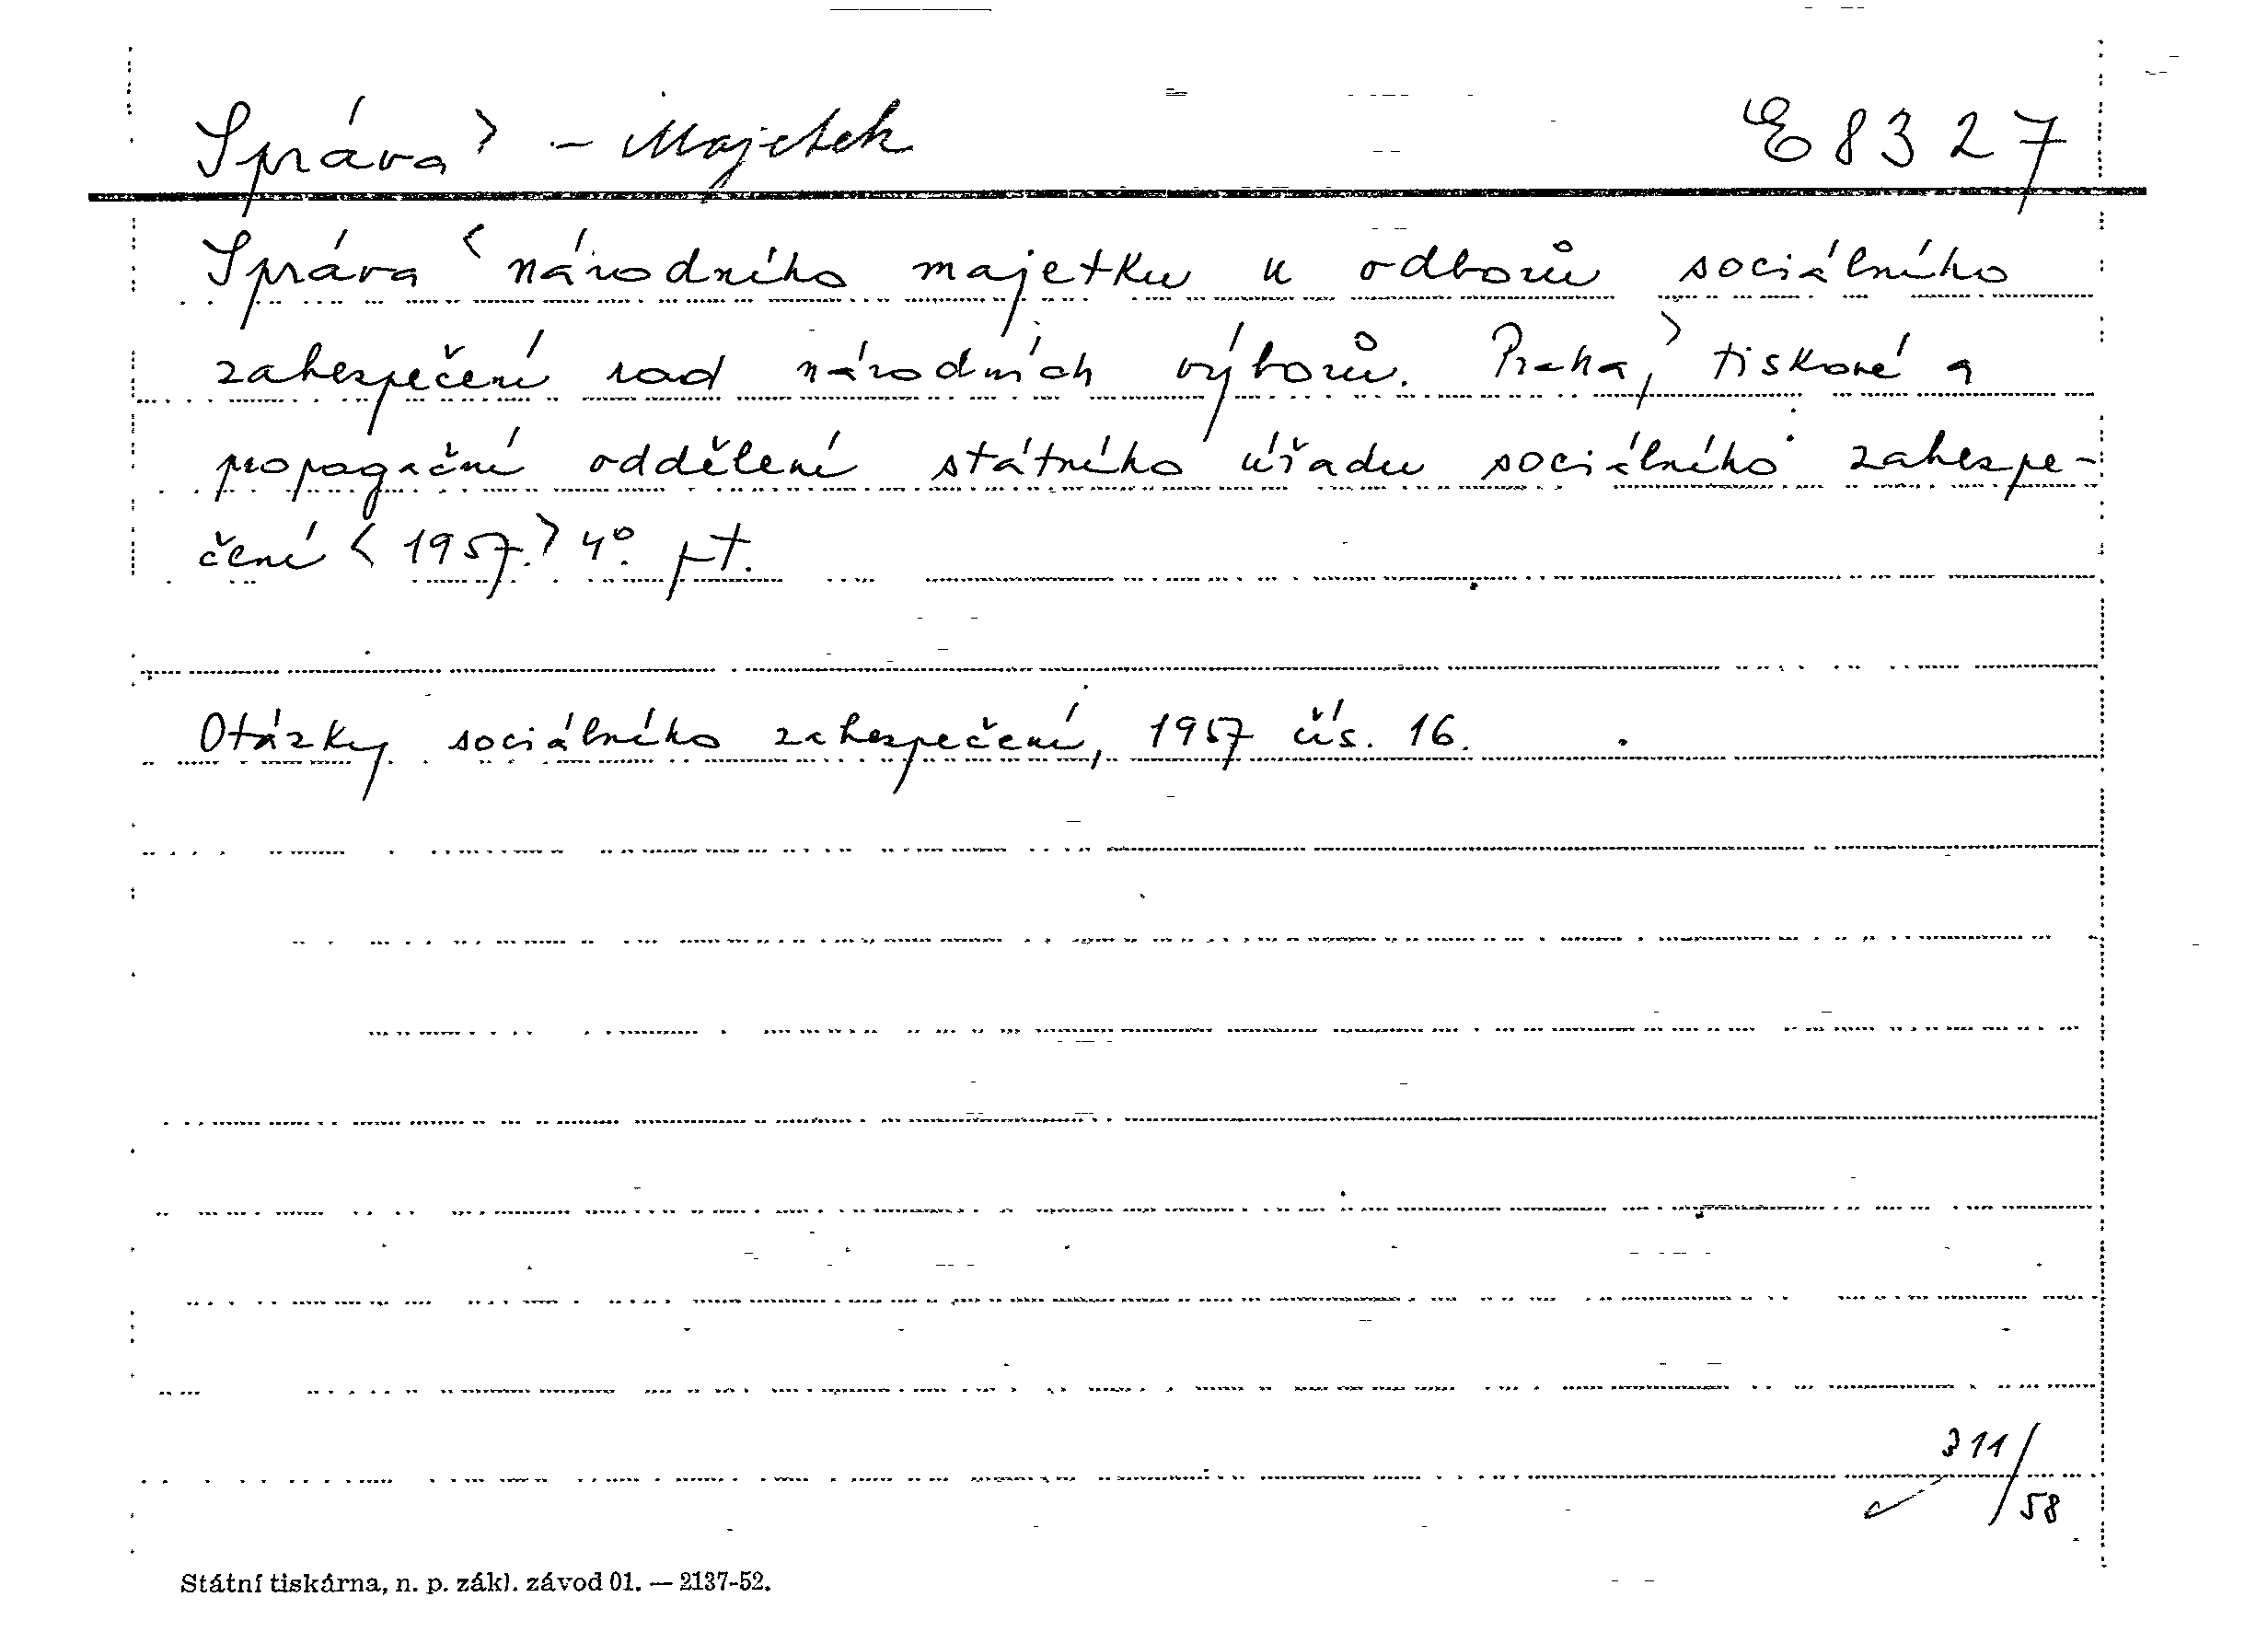 Správa> - Majetek E 8327
Správa <národního majetku u odborů sociálního
zabezpečení rad národních výborů. Praha,> tiskové a
propagační oddělení státního úřadu sociálního zabezpe-
čení <1957.> 4°. pt.
Otázky sociálního zabezpečení, 1957 čís. 16.
311/58
Státní tiskárna, n. p. zákl. závod 01. — 2137-52.